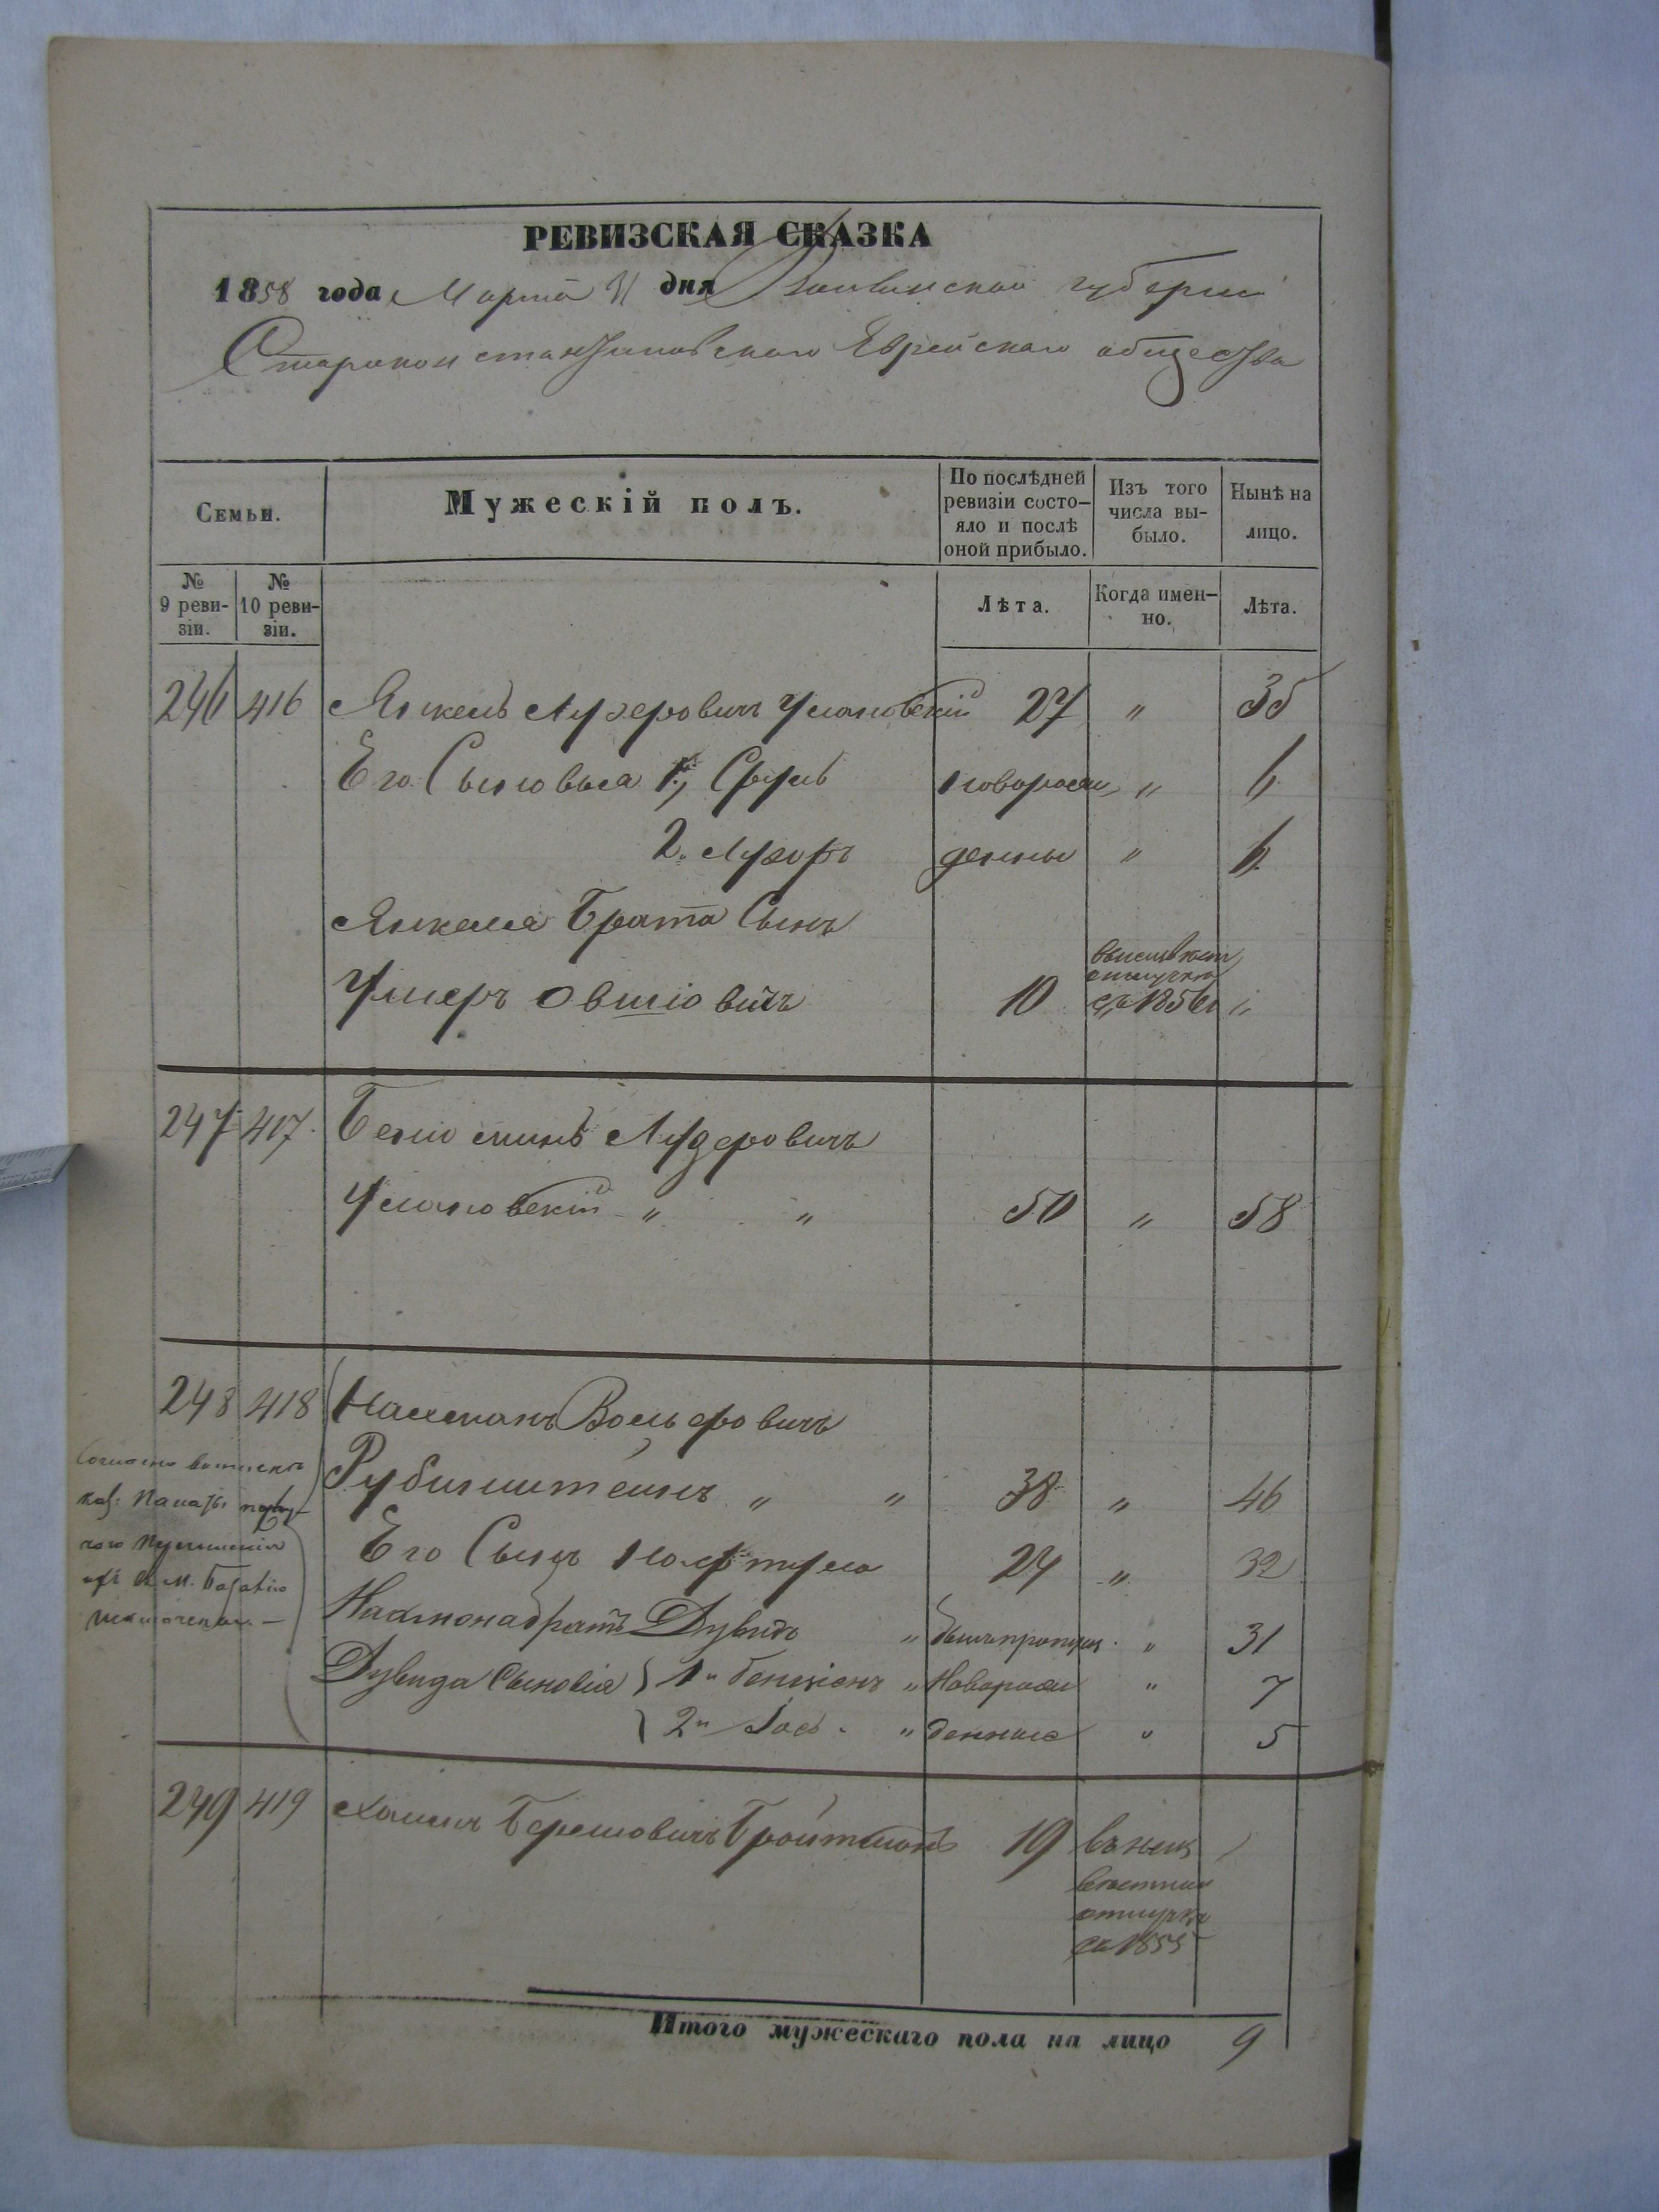 РЕВИЗСКАЯ СКАЗКА
1858 года Марта 31 дня Волынской губерніи
Староконстантиновскаго Еврейскаго общества
Семьи.
Мужескій полъ.
По послѣдней ревизіи состо-яло и послѣ оной прибыло.
Изъ того числа вы-было.
Нынѣ на лицо.
№ 9 реви-зіи.
№ 10 реви-зіи.
Лѣта.
Когда имен-но.
Лѣта.
246 416 Янкель Лузерович Улановскій 27 " 35
Его Сыновья 1, Сруль новорож " 6
2. Лузоръ денны " 6
Янкеля Брата Сынъ
Умеръ Овшіовичъ 10 отлучкѣ съ 1856 "
247 417. Беніоминъ Лузеровичъ
Улановскій " " 50 " 58
248 418 Нахманъ Вольфовичъ
Рубинштейнъ " " 38 " 46
Его Сынъ Нафтула 24 " 32
Нахмона братъ Дувидъ " былъ пропущ. " 31
Дувида Сыновья 1" Бенціонъ " Новорож " 7
2" Іосъ " денные " 5
Согласно
каз: Палаты
249 419 Хаимъ Берковичъ Бройтманъ 19
отлучкѣ
съ 1855
Итого мужескаго пола на лицо 9